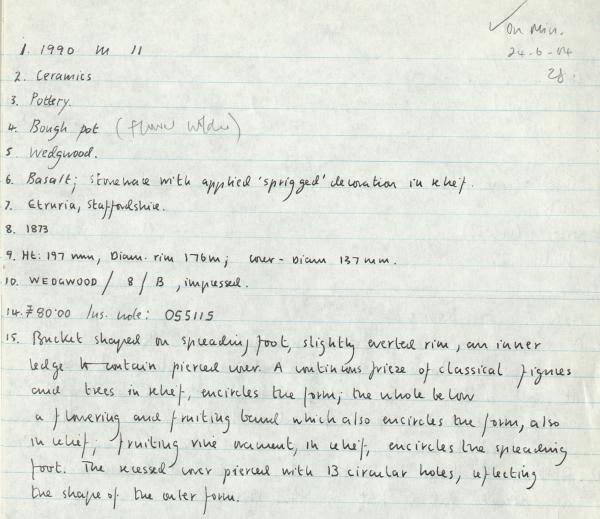 ✓ on Min.
24-6-04
1. 1990 M 11
2. Ceramics
3. Pottery.
4. Bough pot (flower holder)
5. Wedgwood.
6. Basalt; stoneware with applied 'sprigged' decoration in relief.
7. Etruria, Staffordshire.
8. 1873
9. Ht: 197 mm, Diam. rim 176m; cover - Diam 137 mm.
10. WEDGWOOD / 8 / B, impressed.
14. £80.00 Ins. note: 055115
15. Bucket shaped on spreading foot, slightly everted rim, an inner
ledge to contain pierced cover. A continous frieze of classical figures
and trees in relief, encircles the form; the whole below
a flowering and fruiting band which also encircles the form, also
in relief; fruiting vine ornament, in relief, encircles the spreading
foot. The recessed cover pierced with 13 circular holes, reflecting
the shape of the outer form.